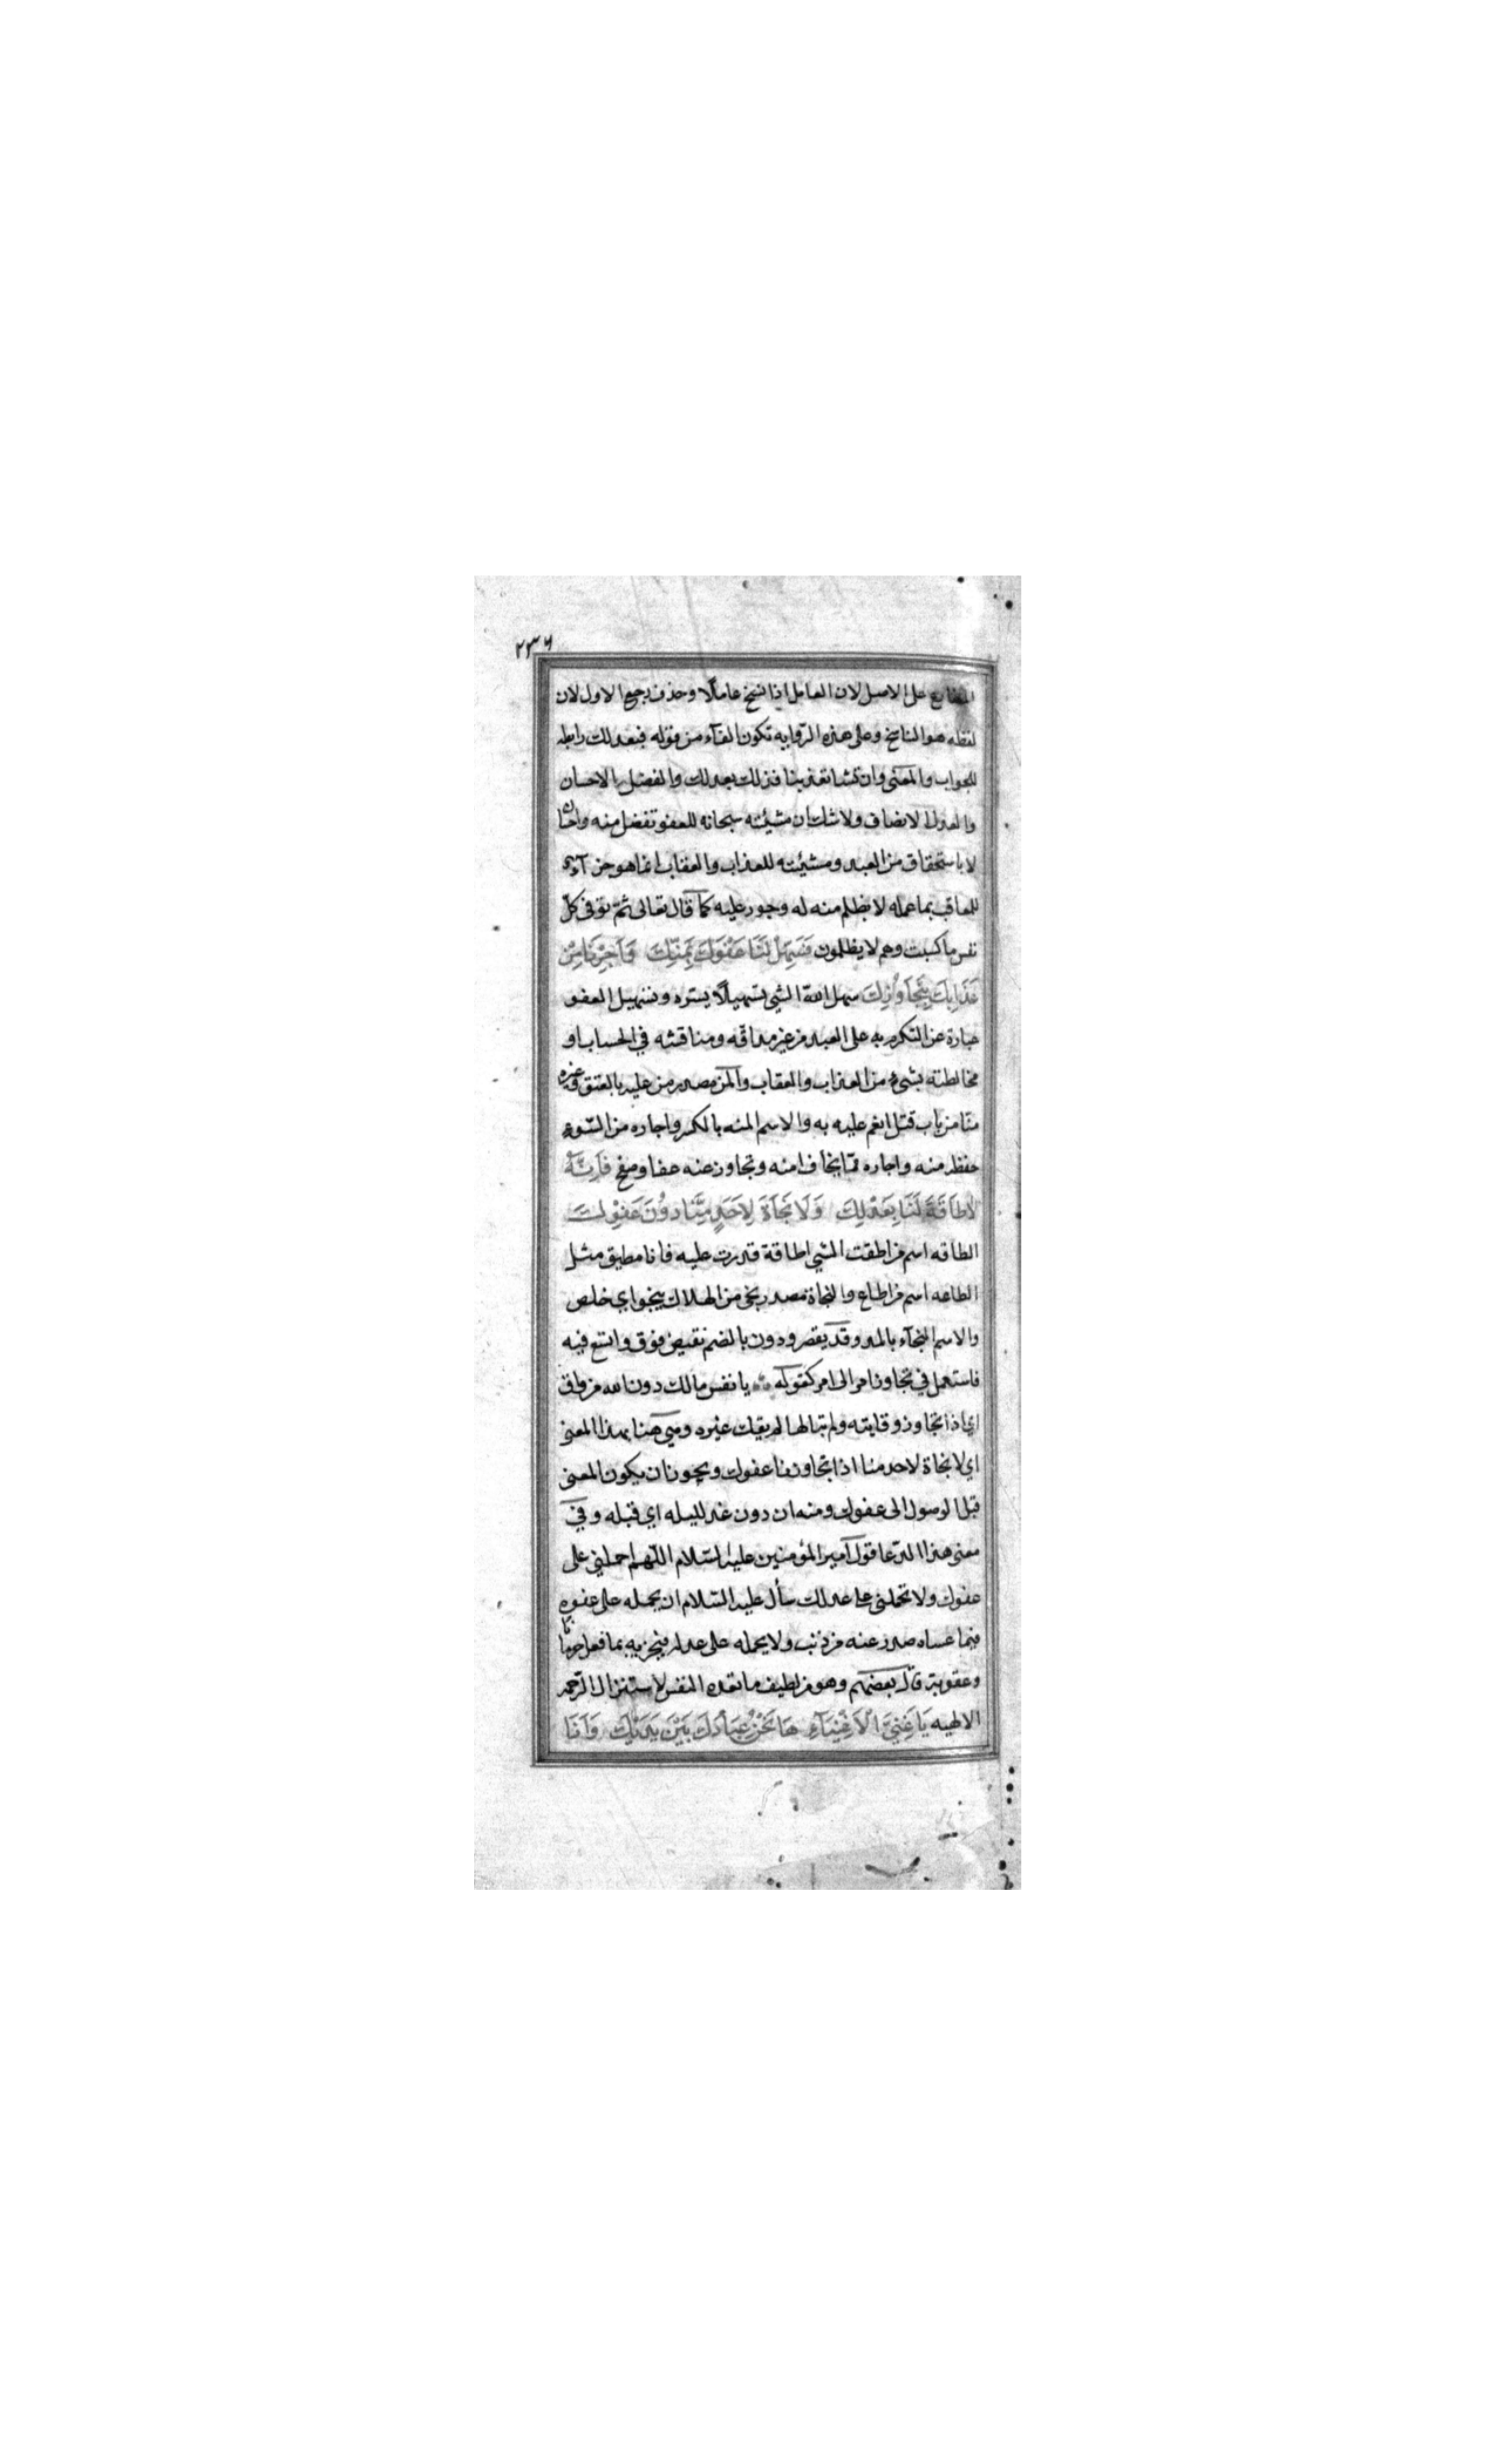 ٢٣٦
المضارع على الاصل لان العامل اذا نسخ عاملًا وحذف رجع الاول لان
لفظه هو الناسخ وعلى هذه الرّوايه تكون الفآء من قوله فبعدلك رابطه
للجواب والمعنى وان تشا تعذبنا فذلك بعدلك والفضل الاحسان
والعدل الانصاف ولاشك ان مشيئته سبحانه للعفو تفضل منه واحسان
لا باستحقاق من العبد ومشيئته للعذاب والعقاب انما هو جزآء
للمعاقب بما عمله لا بظلم منه له وجور عليه كما قال تعالى ثمّ توفى كلّ
نفس ما كسبت وهم لا يظلمون فَسَهِّلْ لَنَا عَفْوَكَ بِمَنِّكَ وَاَجِرْنَا مِنْ
عَذَابِكَ بِتَجَاوُزِكَ سهل الله الشيء تسهيلًا يسّره وتسهيل العفو
عبارة عن التكرم به على العبد من غير مداقّه ومناقشه في الحساب او
مخالطته بشيء من العذاب والعقاب والمن مصدر من عليه بالعتق وغيره
منّا من باب قتل انعم عليه به والاسم المنه بالكسر واجاره من السّوء
حفظه منه واجاره ممّا يخاف امنه وتجاوز عنه عفا وصفح فَاِنَّهُ
لَاطَاقَةَ لَنَا بِعَدْلِكَ وَلَا نَجَاةَ لِاَحَدٍ مِنَّا دُونَ عَفْوِكَ
الطاقه اسم من اطقت الشي اطاقة قدرت عليه فانا مطيق مثل
الطاعه اسم من اطاع والنجاة مصدر نجى من الهلاك ينجو اي خلص
والاسم النجآء بالمد وقد يقصر ودون بالضم نقيض فوق واتسع فيه
فاستعمل في تجاوز امر الى امر كقوله يا نفس مالك دون الله من واق
اي اذا تجاوز وقايته ولم تبالها لم يقك غيره وهي هنا بهذا المعنى
اي لا نجاة لاحد منا اذا تجاوزنا عفوك ويجوز ان يكون المعنى
قبل الوصول الى عفوك ومنه ان دون غد لليله اي قبله وفي
معنى هذا الدّعا قول آمير المؤمنين عليه السّلام اللّهم احملني على
عفوك ولا تحملني على عدلك سأل عليه السّلام ان يحمله على عفوه
فيما عساه صدر عنه من ذنب ولا يحمله على عدله فيجزيه بما فعل حرمانا
وعقوبة قال بعضهم وهو من لطيف ما تعده النفس لاستنزال الرّحمه
الالهيه يَا غَنِيَّ الْاَغْنِيَآءِ هَا نَحْنُ عِبَادُكَ بَيْنَ يَدَيْكَ وَاَنَا